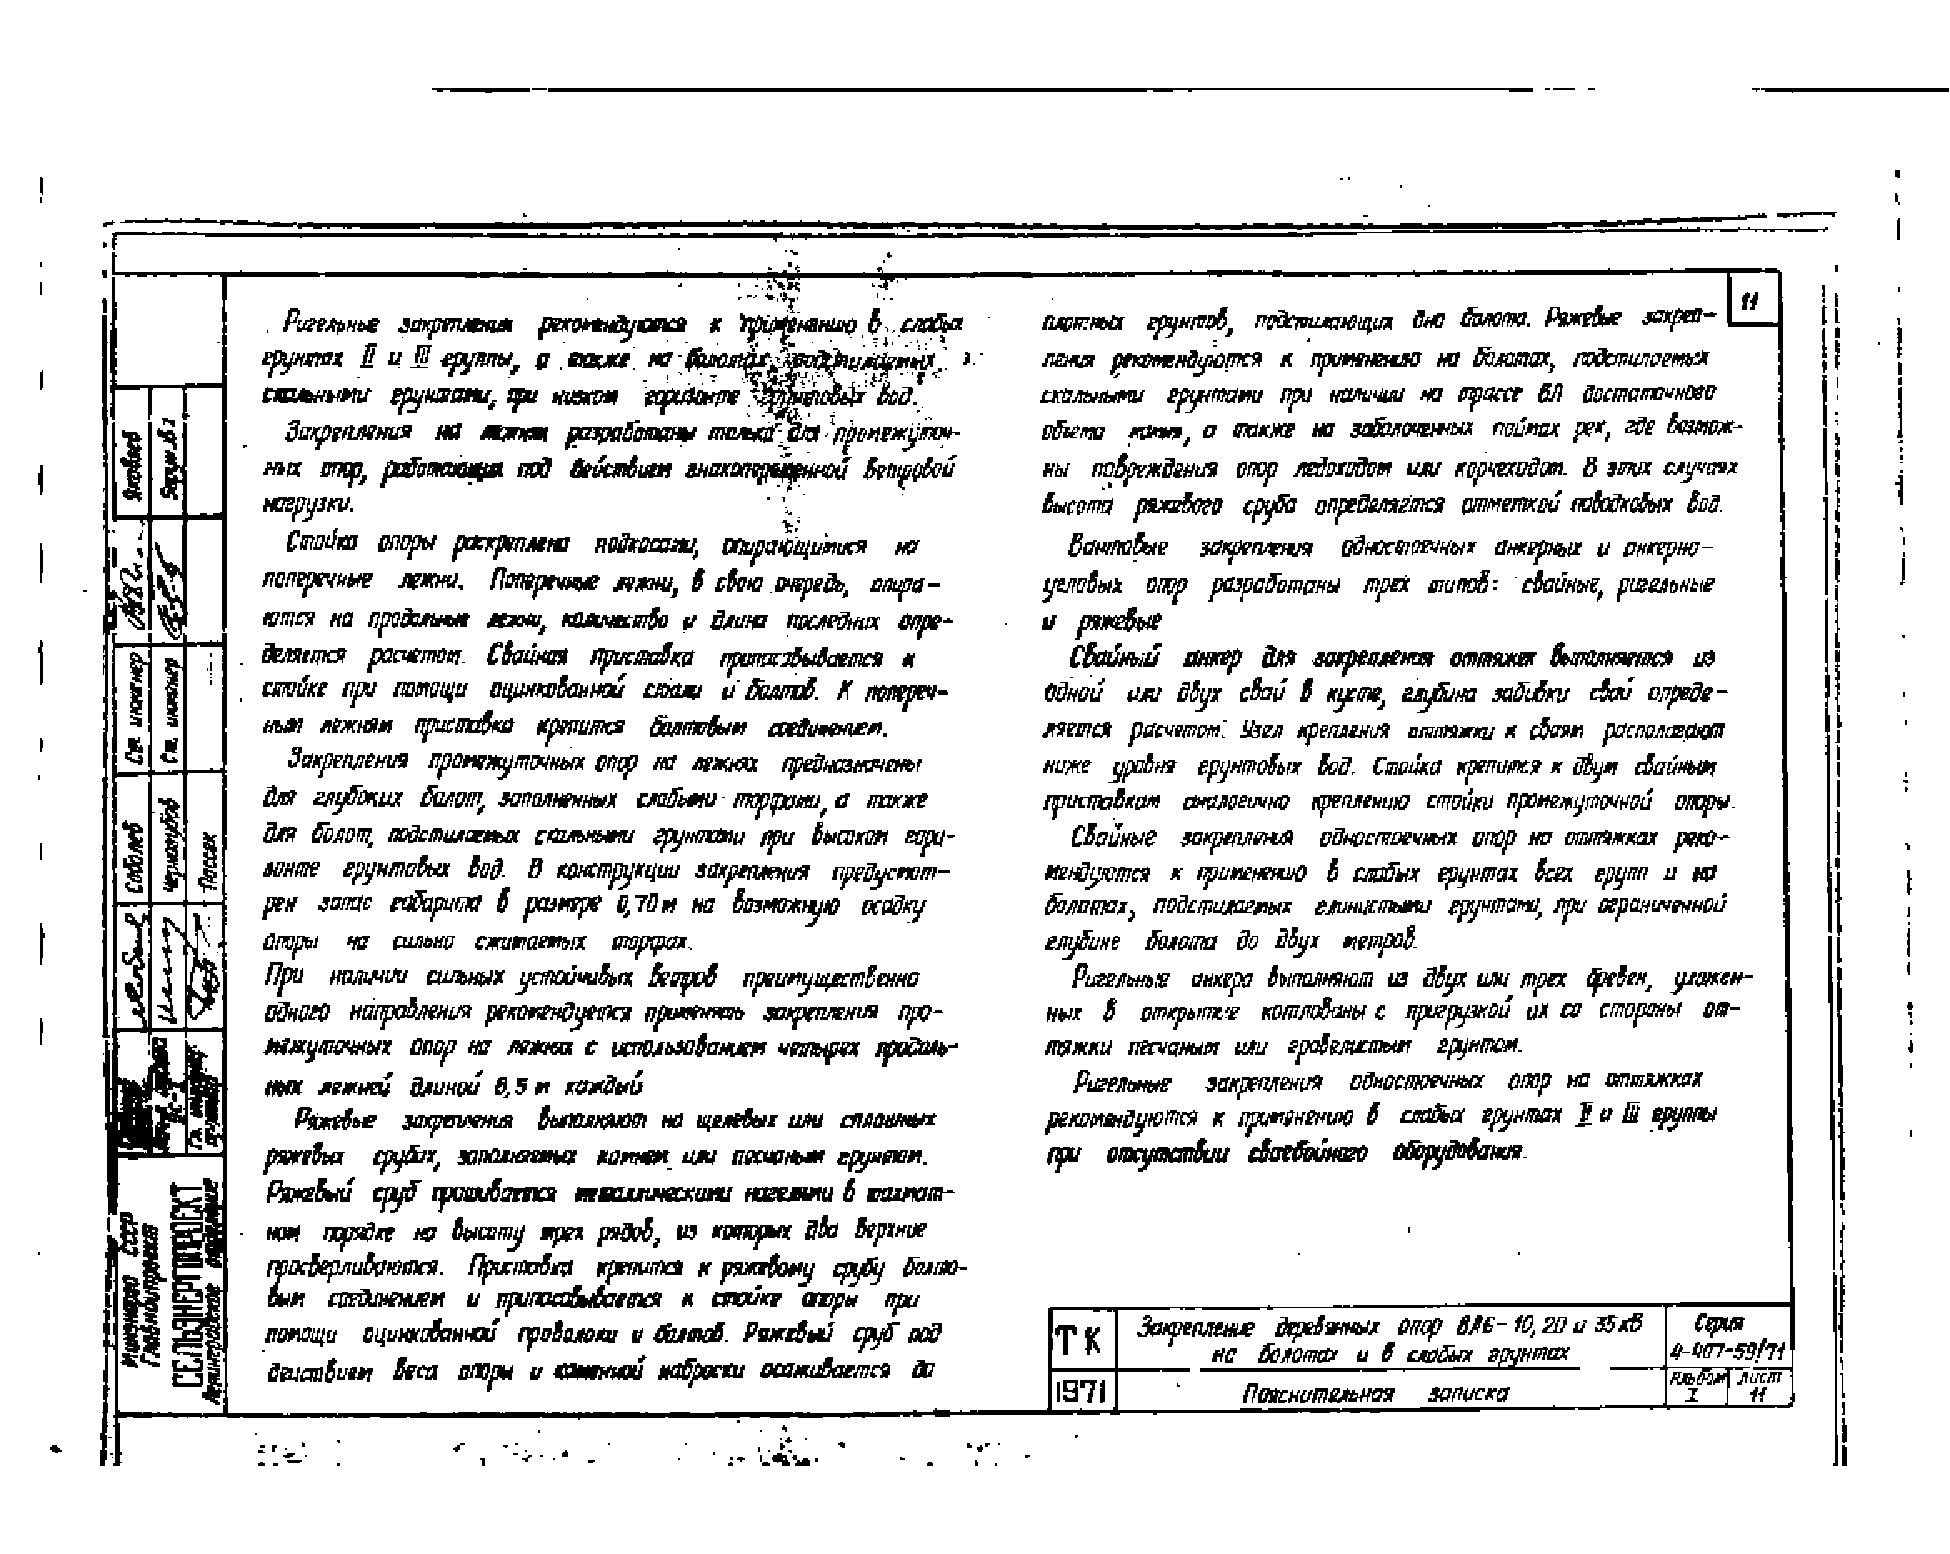 11
Ригельные закрепления рекомендуются к применению в слабых
грунтах II и III группы, а также на болотах подстилаемых
скальными грунтами, при низком горизонте грунтовых вод.
Закрепления на лежнях разработаны только для промежуточ-
ных опор, работающих под действием знакопеременной ветровой
нагрузки.
Стойка опоры раскреплена подкосами, опирающимися на
поперечные лежни. Поперечные лежни, в свою очередь, опира-
ются на продольные лежни, количество и длина последних опре-
деляется расчетом. Свайная приставка припасовывается к
стойке при помощи оцинкованной стали и болтов. К попереч-
ным лежням приставка крепится болтовым соединением.
Закрепления промежуточных опор на лежнях предназначены
для глубоких болот, заполненных слабыми торфами, а также
для болот, подстилаемых скальными грунтами при высоком гори-
зонте грунтовых вод. В конструкции закрепления предусмот-
рен запас габарита в размере 0,70 м на возможную осадку
опоры на сильно сжимаемых торфах.
При наличии сильных устойчивых ветров преимущественно
одного направления рекомендуется применять закрепления про-
межуточных опор на лежнях с использованием четырех продоль-
ных лежней длиной 8,5 м каждый
Ряжевые закрепления выполняют на щелевых или сплошных
ряжевых срубах, заполняемых камнем или песчаным грунтом.
Ряжевый сруб прошивается металлическими нагелями в шахмат-
ном порядке на высоту трех рядов, из которых два верхние
просверливаются. Приставка крепится к ряжевому срубу болто-
вым соединением и припасовывается к стойке опоры при
помощи оцинкованной проволоки и болтов. Ряжевый сруб под
действием веса опоры и каменной наброски осаживается до
плотных грунтов, подстилающих дно болота. Ряжевые закреп-
ления рекомендуются к применению на болотах, подстилаемых
скальными грунтами при наличии на трассе ВЛ достаточного
объема камня, а также на заболоченных поймах рек, где возмож-
ны повреждения опор ледоходом или корчеходом. В этих случаях
высота ряжевого сруба определяется отметкой паводковых вод.
Вантовые закрепления одностоечных анкерных и анкерно-
угловых опор разработаны трех типов: свайные, ригельные
и ряжевые
Свайный анкер для закрепления оттяжек выполняется из
одной или двух свай в кусте, глубина забивки свай опреде-
ляется расчетом. Узел крепления оттяжки к сваям располагают
ниже уровня грунтовых вод. Стойка крепится к двум свайным
приставкам аналогично креплению стойки промежуточной опоры.
Свайные закрепления одностоечных опор на оттяжках реко-
мендуются к применению в слабых грунтах всех групп и на
болотах, подстилаемых глинистыми грунтами, при ограниченной
глубине болота до двух метров.
Ригельные анкера выполняют из двух или трех бревен, уложен-
ных в открытые котлованы с пригрузкой их со стороны от-
тяжки песчаным или гравелистым грунтом.
Ригельные закрепления одностоечных опор на оттяжках
рекомендуются к применению в слабых грунтах II и III группы
при отсутствии сваебойного оборудования.
ТК
1971
Закрепление деревянных опор ВЛ 6-10, 20 и 35 кВ
на болотах и в слабых грунтах
Пояснительная записка
Серия
4-407-59/71
Альбом
I
Лист
11
Минэнерго СССР
СЕЛЬЭНЕРГОПРОЕКТ
Соболев
Ст. инженер
Ст. инженер